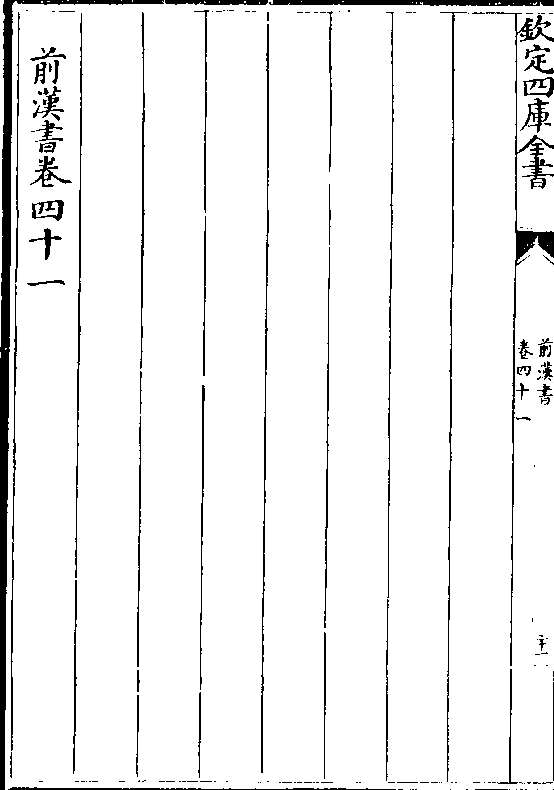 欽定四庫全書
前漢書
卷四十一
前漢書卷四十一